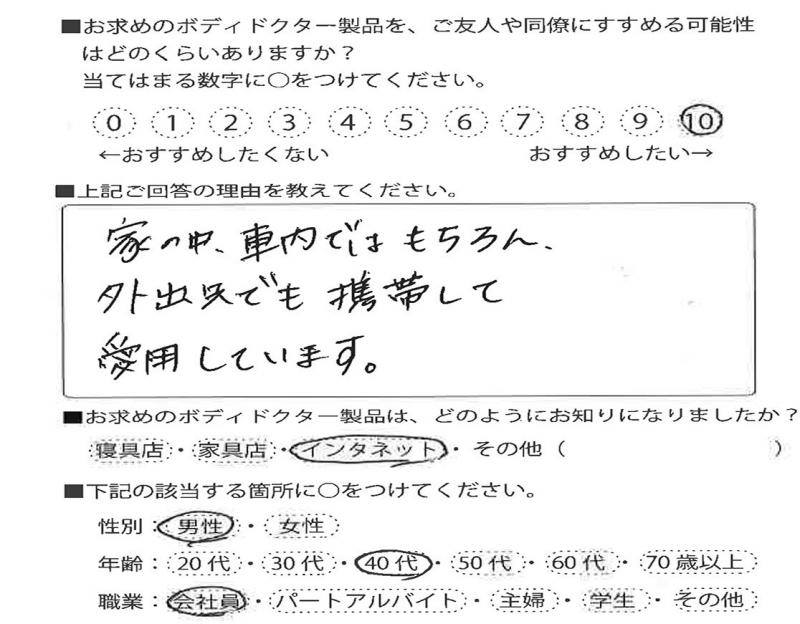 ■お求めのボディドクター製品を、ご友人や同僚にすすめる可能性
はどのくらいありますか？
当てはまる数字に○をつけてください。
0 1 2 3 4 5 6 7 8 9 10
←おすすめしたくない おすすめしたい→
■上記ご回答の理由を教えてください。
家の中、車内ではもちろん、
外出先でも携帯して
愛用しています。
■お求めのボディドクター製品は、どのようにお知りになりましたか？
寝具店・家具店・インタネット・その他（ ）
■下記の該当する箇所に○をつけてください。
性別：男性・女性
年齢：20代・30代・40代・50代・60代・70歳以上
職業：会社員・パートアルバイト・主婦・学生・その他